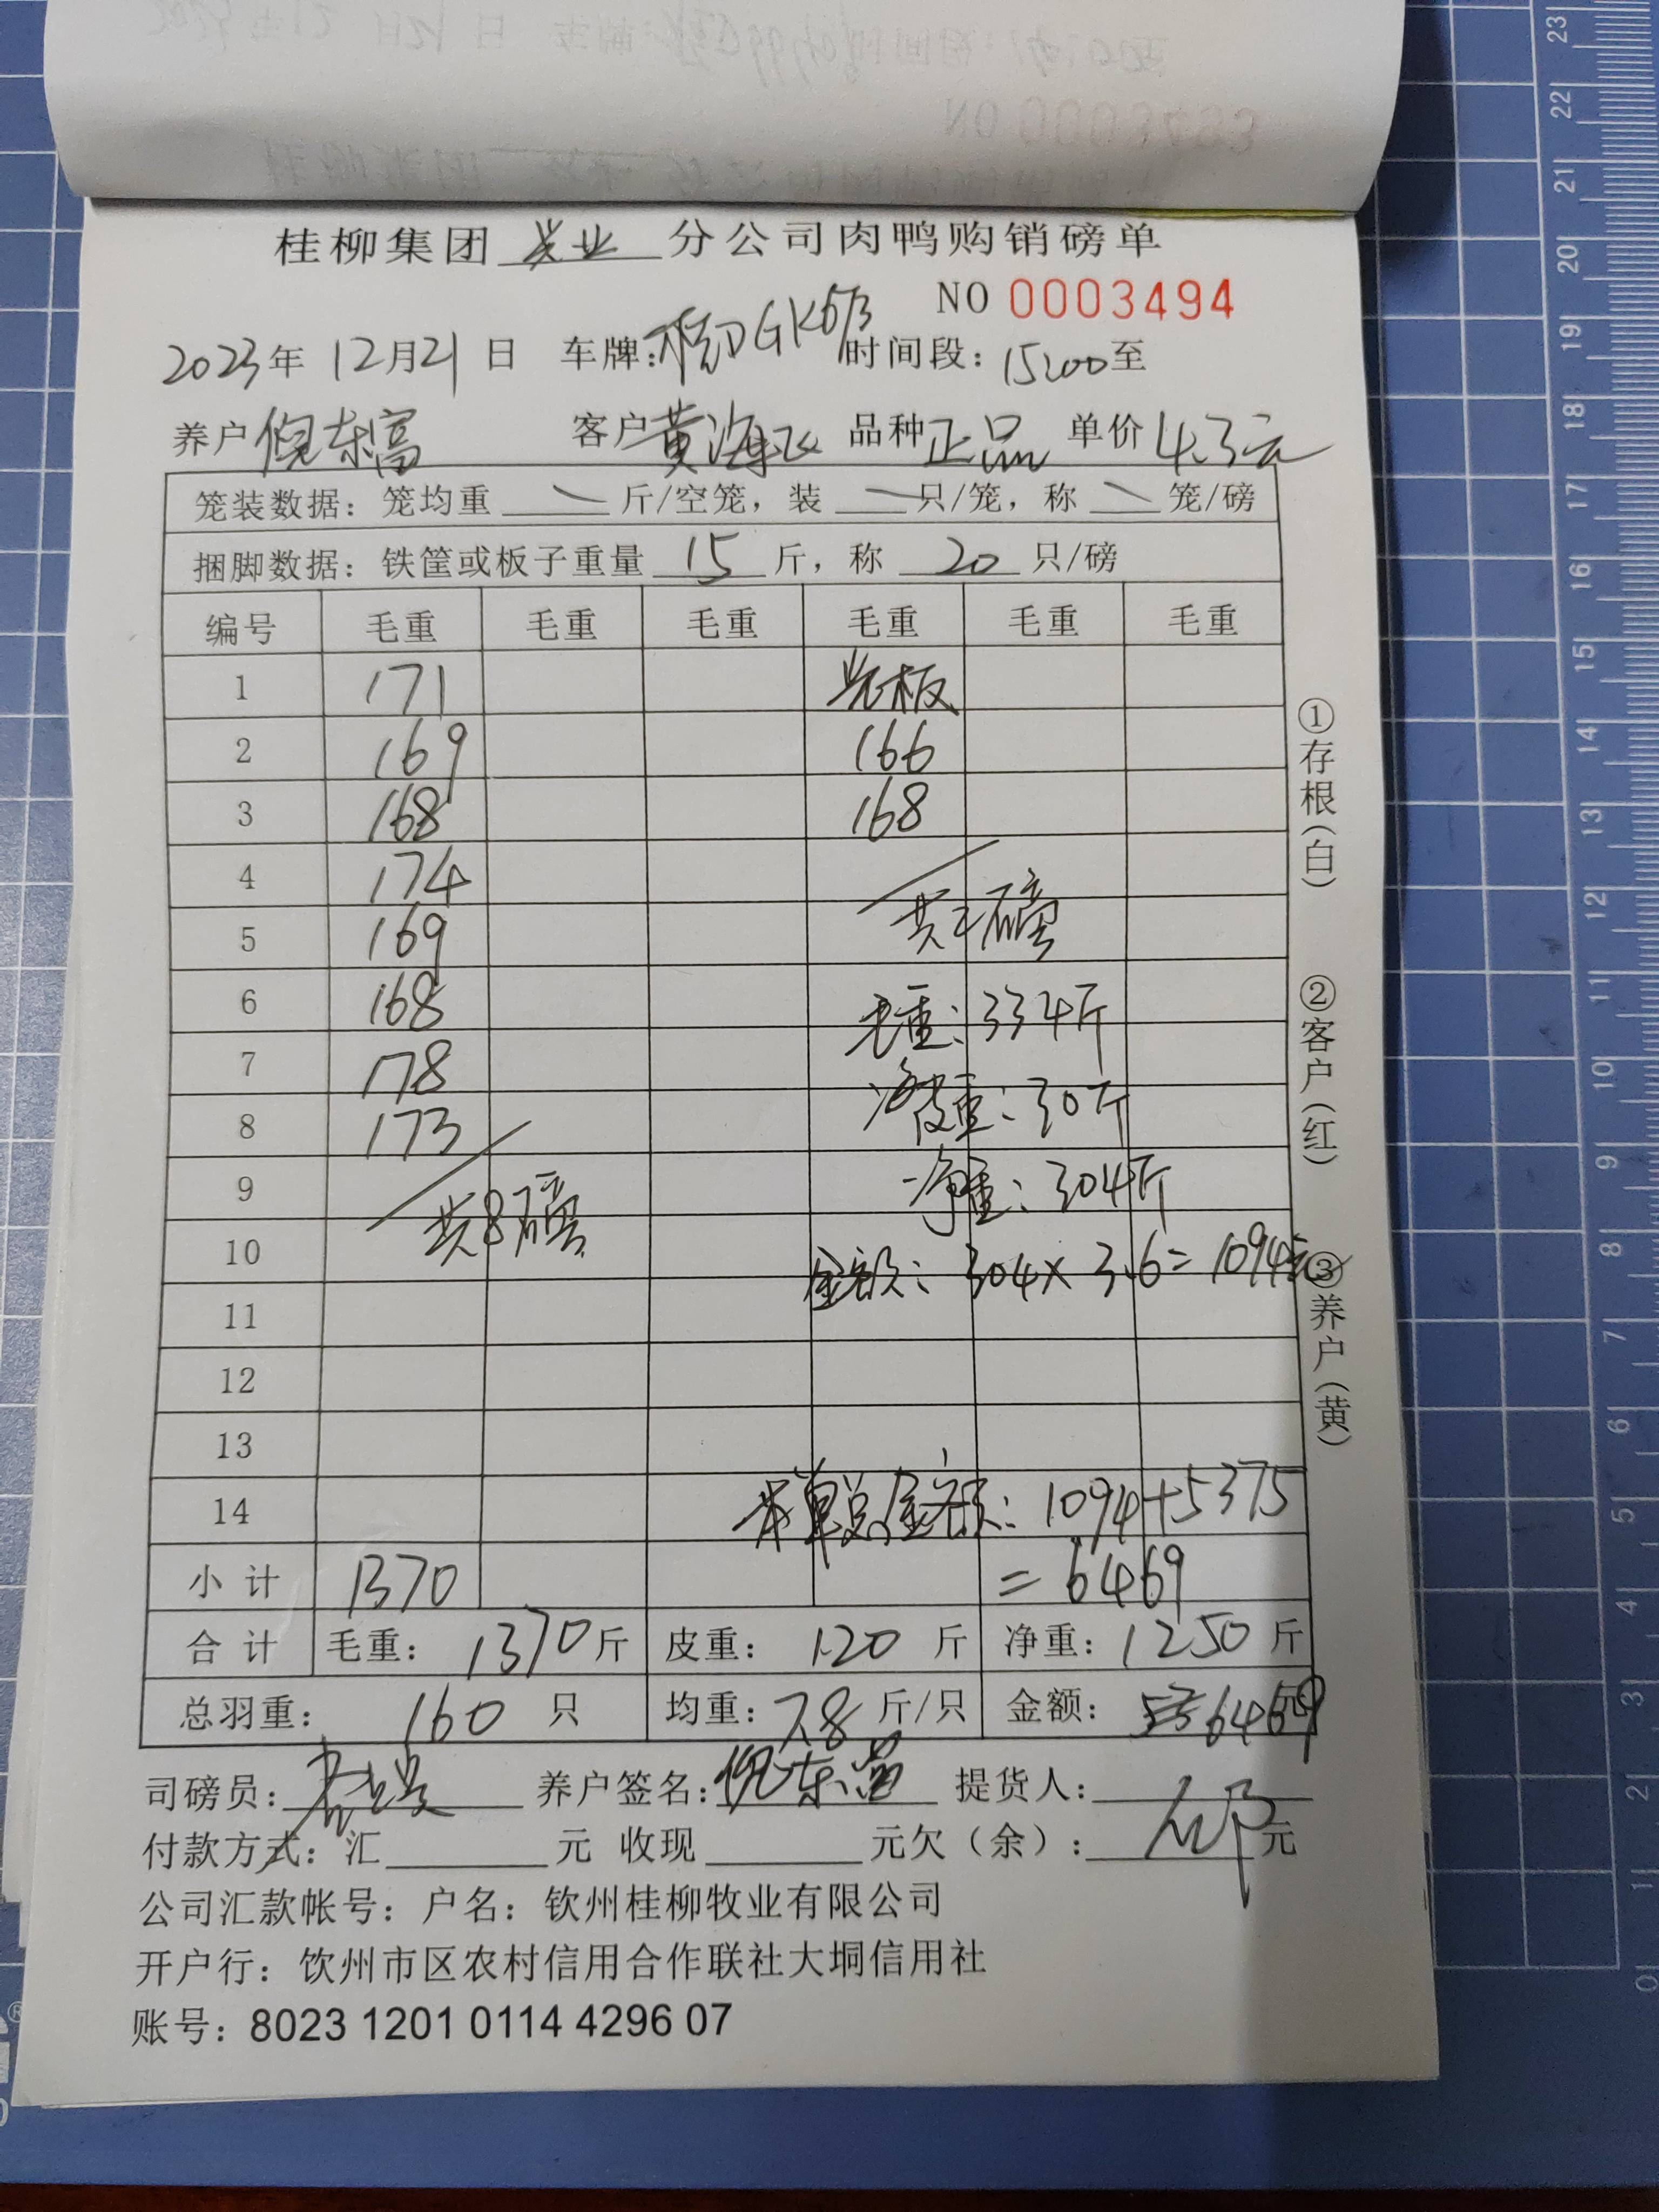 桂柳集团 兴业 分公司肉鸭购销磅单
NO 0003494
2023年 12月21日 车牌:桂DGK673 时间段: 15:00至
养户 倪东富 客户 黄海飞 品种 正品 单价 4.3元
笼装数据: 笼均重 斤/空笼, 装 只/笼, 称 笼/磅
捆脚数据: 铁筐或板子重量 15 斤, 称 20 只/磅
编号 毛重 毛重 毛重 毛重 毛重 毛重
1 171
2 169 166
3 168 168
4 174
5 169 共2磅
6 168 毛重: 334斤
7 178 皮重: 30斤
8 173
9 净重: 304斤
共8磅
10 金额: 304×3.6=1094元
11
12
13
14 本单总金额: 1094+5375
小计 1370 =6469
合计 毛重: 1370斤 皮重: 120 斤 净重: 1250斤
总羽重: 160 只 均重: 7.8 斤/只 金额: 6469
司磅员: 养户签名: 倪东富 提货人:
付款方式: 汇 元 收现 元欠(余): 元
公司汇款帐号: 户名: 钦州桂柳牧业有限公司
开户行: 饮州市区农村信用合作联社大垌信用社
账号: 8023 1201 0114 4296 07
①存根(白)
②客户(红)
③养户(黄)